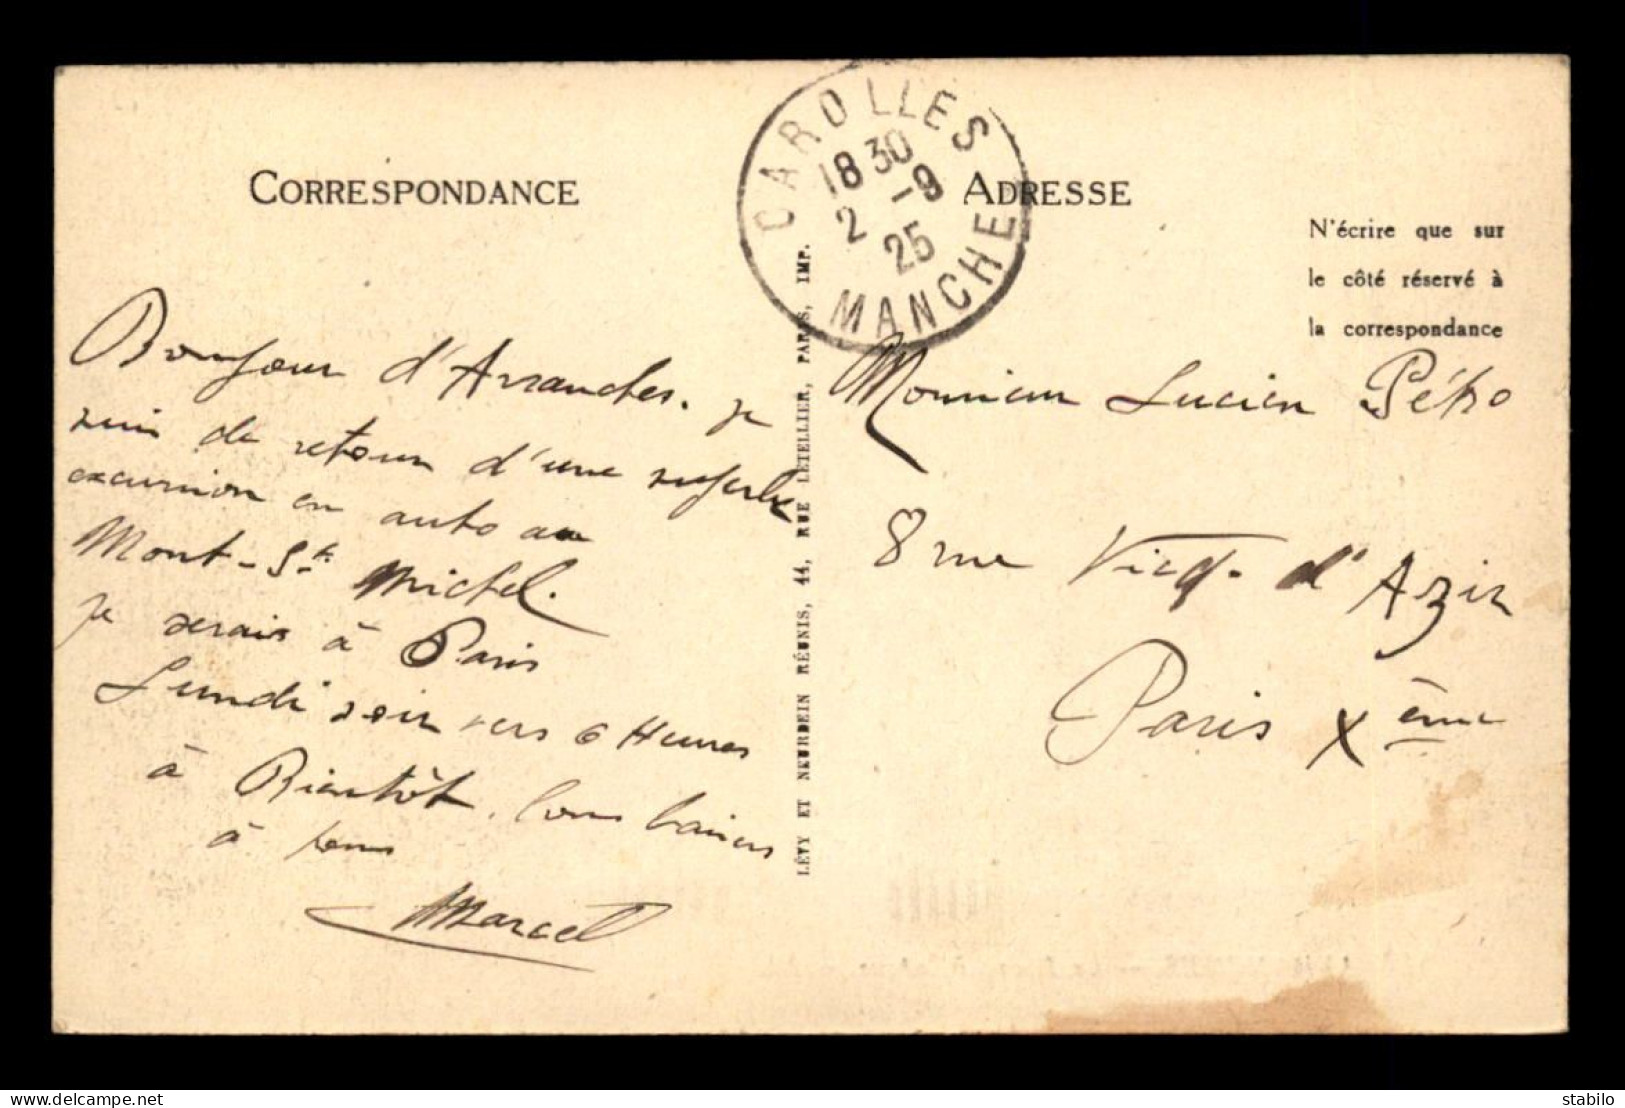 CORRESPONDANCE
ADRESSE
CAROLLES
18 30
2 -9
25
MANCHE
N'écrire que sur
le côté réservé à
la correspondance
LÉVY ET NEURDEIN RÉUNIS, 44, RUE LETELLIER, PARIS, IMP.
Bonjour d'Avranches. je
suis de retour d'une superbe
excursion en auto au
Mont-St Michel.
je serais à Paris
Lundi soir vers 6 Heures
à Bientôt. bons baisers
à tous
Marcel
Monsieur Lucien Pétro
8 rue Vicq. d'Azir
Paris Xème
delcampe.net
stabilo